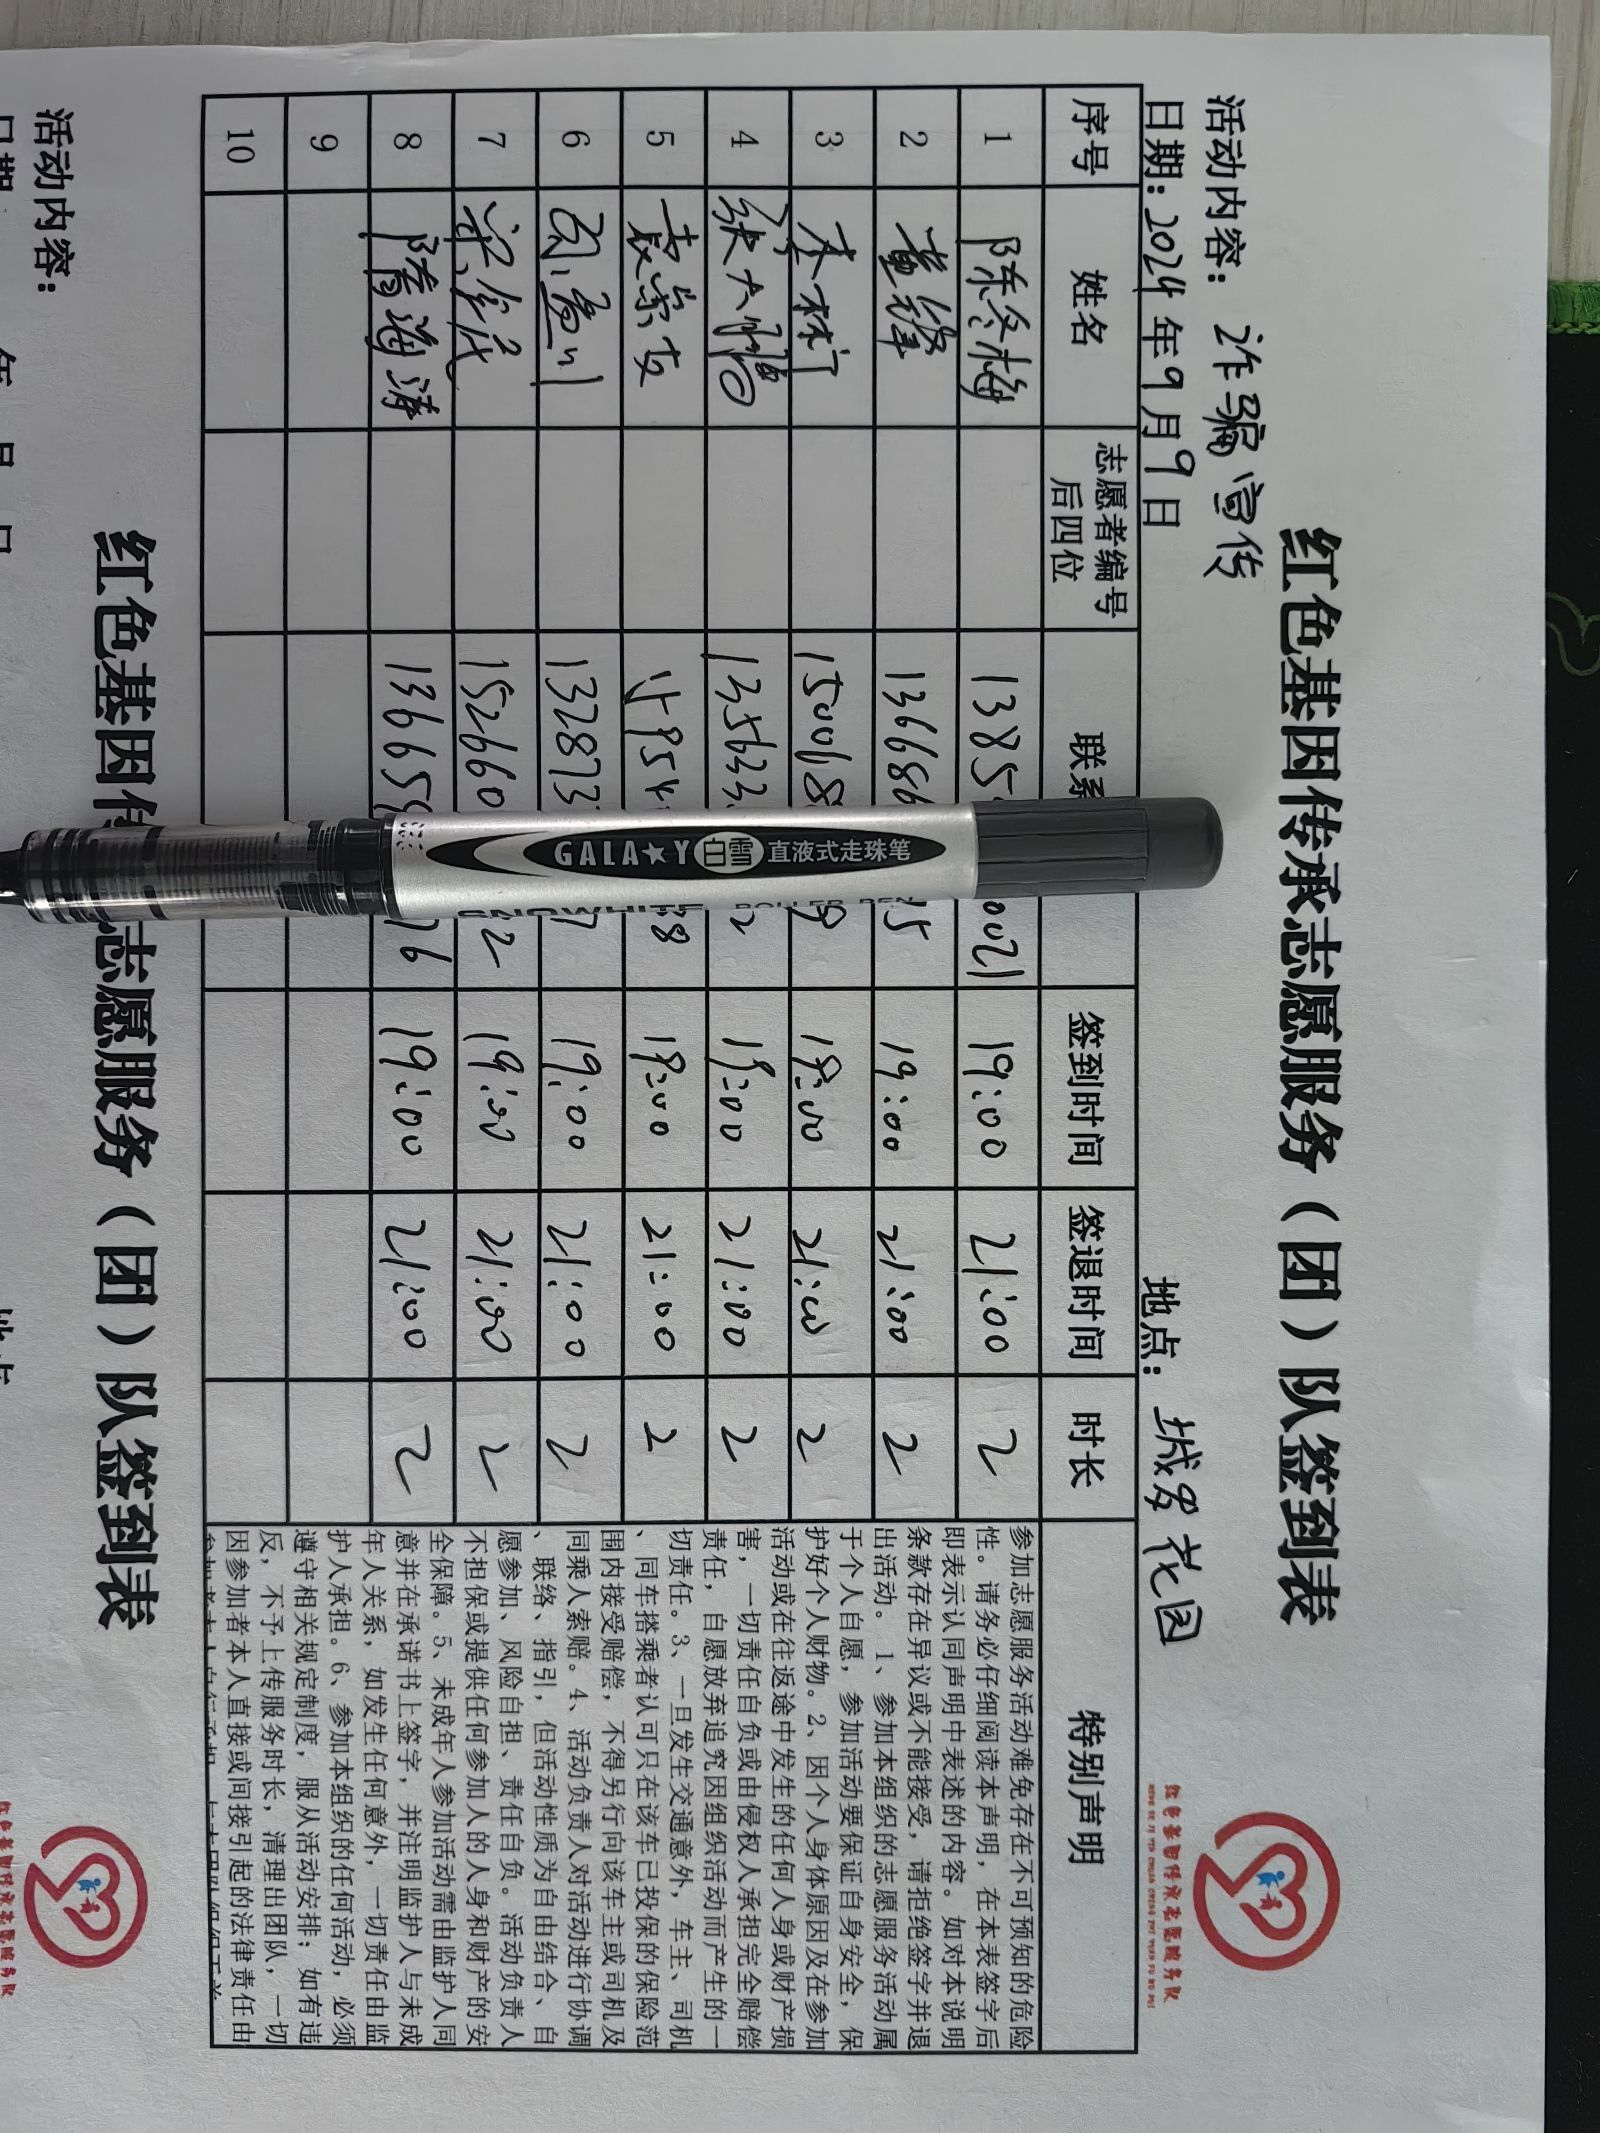 红色基因传承志愿服务（团）队签到表
活动内容： 诈骗宣传
日期：2024年9月9日 地点：城界花园
序号 姓名 志愿者编号后四位 联系 签到时间 签退时间 时长 特别声明
1 陈冬梅 1385 0021 19:00 21:00 2
2 董锋 136686 5 19:00 21:00 2
3 150018 9 19:00 21:00 2
4 135633 2 19:00 21:00 2
5 袁崇安 954 8 19:00 21:00 2
6 132873 7 19:00 21:00 2
7 152660 2 19:00 21:00 2
8 隋海涛 136659 76 19:00 21:00 2
9
10
参加志愿服务活动难免存在不可预知的危险
性。请务必仔细阅读本声明，在本表签字后
即表示认同声明中表述的内容。如对本说明
条款存在异议或不能接受，请拒绝签字并退
出活动。1、参加本组织的志愿服务活动属
于个人自愿，参加活动要保证自身安全，保
护好个人财物。2、因个人身体原因及在参加
活动或在往返途中发生的任何人身或财产损
害，一切责任自负或由侵权人承担完全赔偿
责任，自愿放弃追究因组织活动而产生的一
切责任。3、一旦发生交通意外，车主、司机
、同车搭乘者认可只在该车已投保的保险范
围内接受赔偿，不得另行向该车主或司机及
同乘人索赔。4、活动负责人对活动进行协调
、联络、指引，但活动性质为自由结合、自
愿参加、风险自担、责任自负。活动负责人
不担保或提供任何参加人的人身和财产的安
全保障。5、未成年人参加活动需由监护人同
意并在承诺书上签字，并注明监护人与未成
年人关系，如发生任何意外，一切责任由监
护人承担。6、参加本组织的任何活动，必须
遵守相关规定制度，服从活动安排；如有违
反，不予上传服务时长，清理出团队，一切
因参加者本人直接或间接引起的法律责任由
GALA★Y 白雪 直液式走珠笔
红色基因传承志愿服务队
红色基因传 志愿服务（团）队签到表
活动内容：
日期 年 月 日 地点
红色基因传承志愿服务队